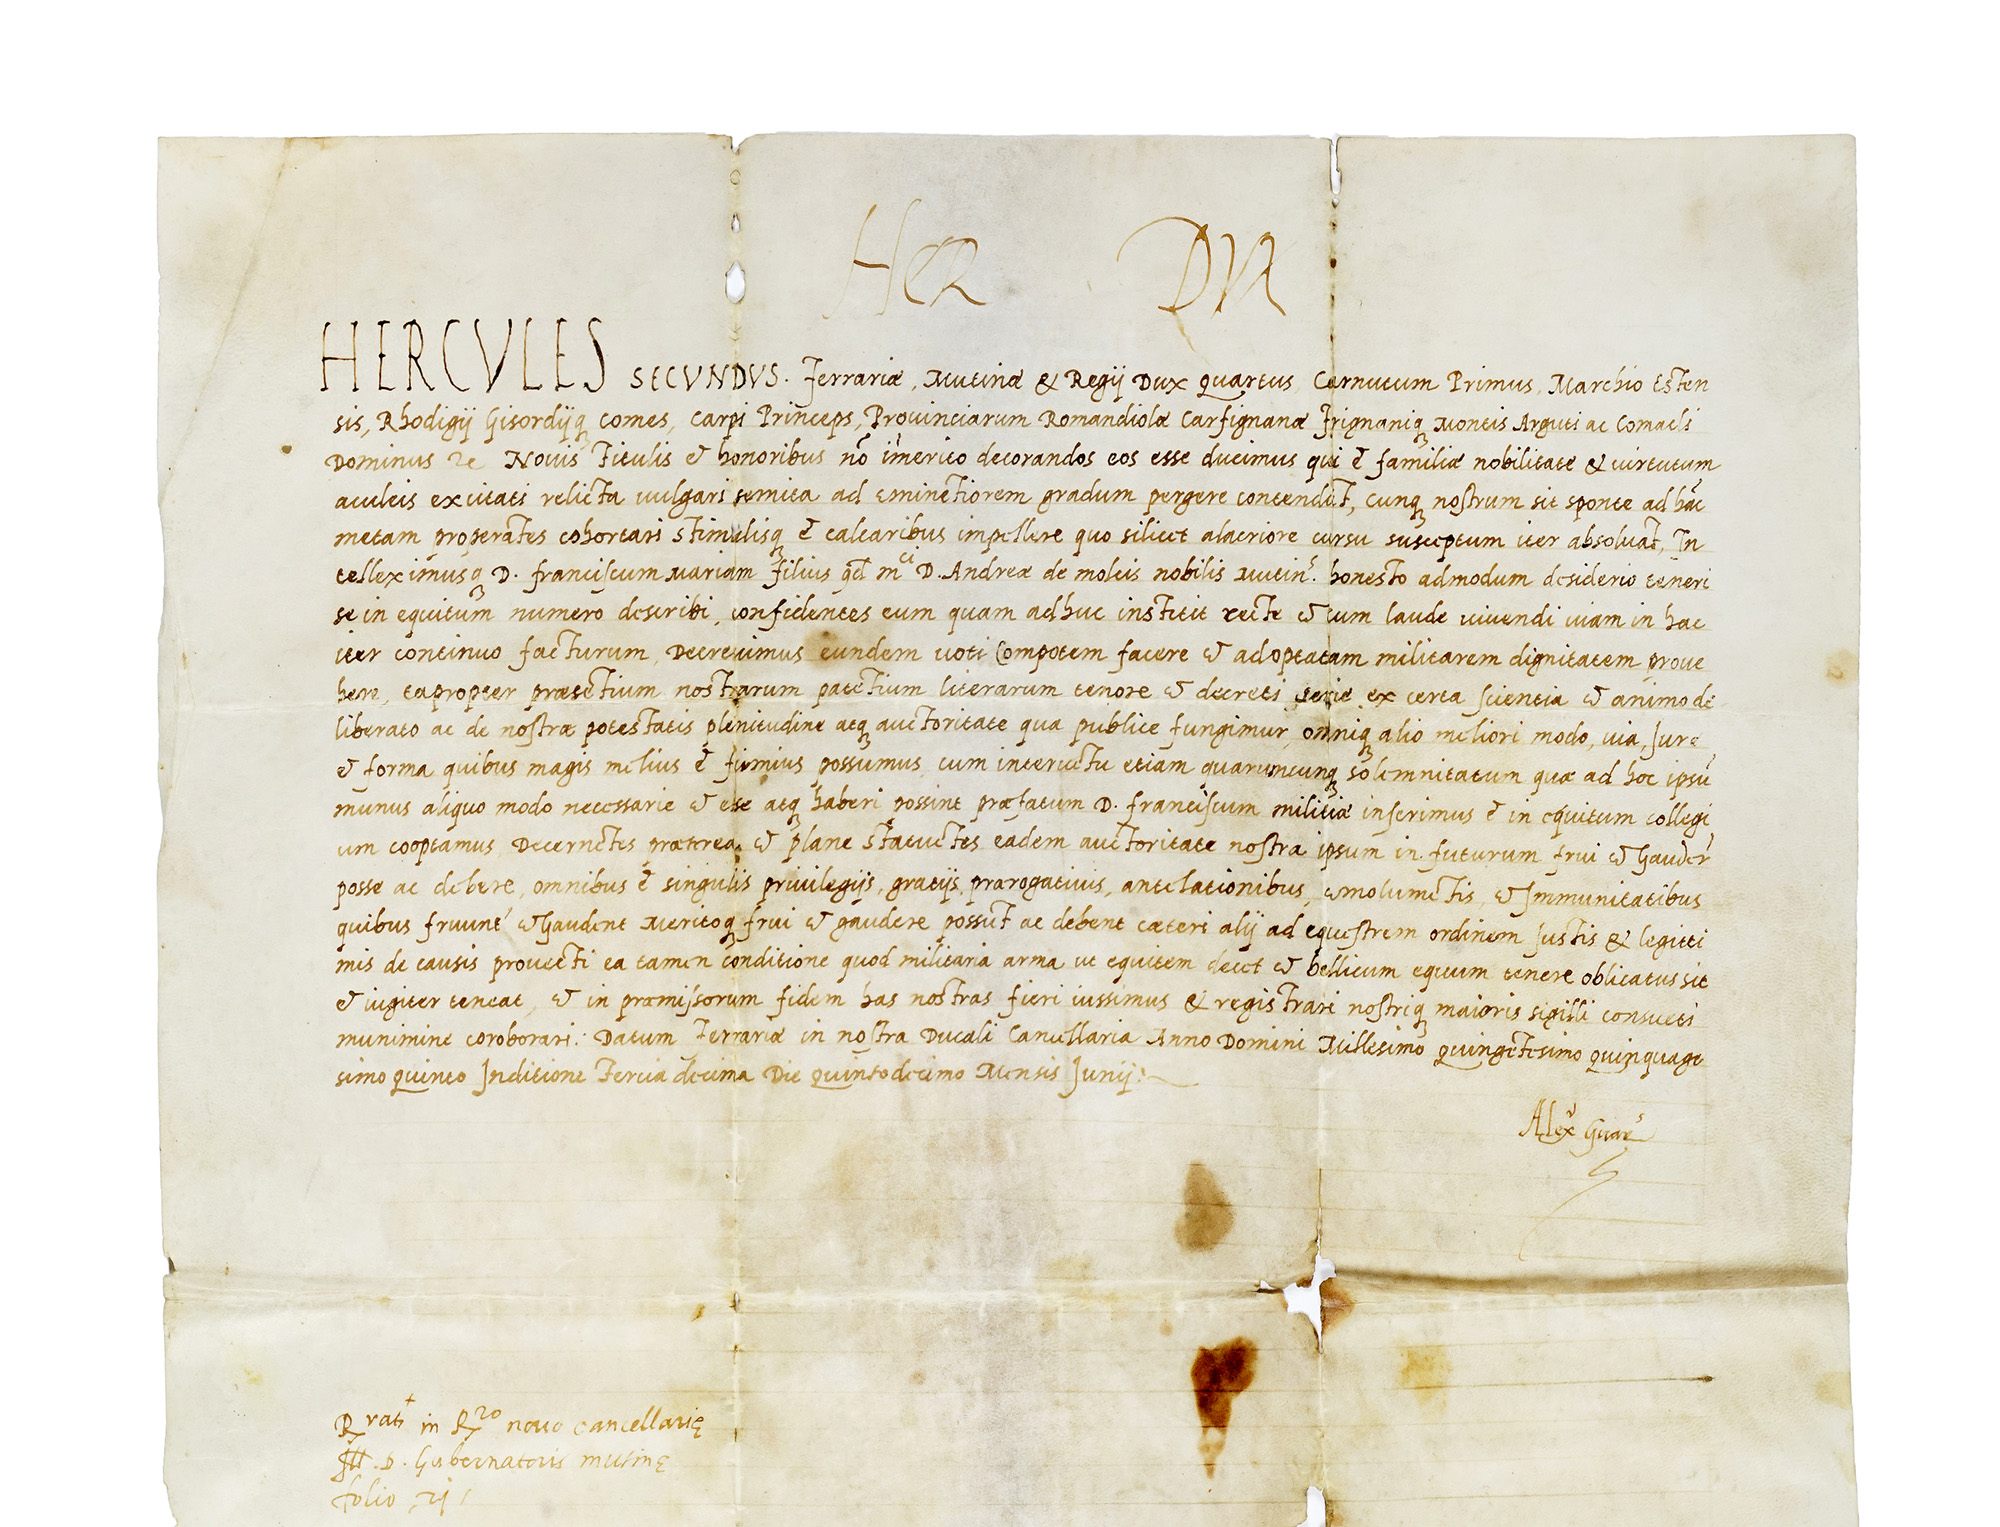 HER DVX
HERCVLES SECVNDVS. Ferrariæ, Mutinæ & Regij Dux Quartus, Carnutum Primus, Marchio Esten
sis, Rhodigij Gisordijq comes, Carpi Princeps, Prouinciarum Romandiolæ Carfignanæ Frignaniq Montis Arguti ac Comacli
Dominus Zc Nouis Titulis & honoribus nō īmerito decorandos eos esse ducimus qui & familiæ nobilitate & uirtutum
aculeis excitati relicta uulgari semita ad eminētiorem gradum pergere contendāt, Cunq nostrum sit sponte ad hāc
metam properātes cohortari stimulisq & calcaribus impellere quo silicet alacriore cursu susceptum iter absoluāt, In
telleximusq D. franciscum Mariam filius qđ mci D. Andreæ de moleis nobilis Mutins. honesto admodum desiderio teneri
se in equitum numero describi, confidentes eum quam adhuc institit recte & cum laude uiuendi uiam in hac
iter continuo facturum, Decreuimus eundem uoti Compotem facere & adoptatam militarem dignitatem proue
here, eapropter præsētium nostrarum patētium literarum tenore & decreti serie ex certa scientia & animo de
liberato ac de nostræ potestatis plenitudine atq auctoritate qua publice fungimur, omniq alio meliori modo, uia, Jure
& forma quibus magis melius & firmius possumus cum interuētu etiam quarumcunq solemnitatum quæ ad hoc ipsū
munus aliquo modo necessarie & ese atq haberi possint præfatum D. franciscum militiæ inserimus & in equitum collegi
um cooptamus Decernētes præterea & plane statuētes eadem auctoritate nostra ipsum in futurum frui & Gauder
posse ac debere, omnibus & singulis priuilegijs, gratijs, prærogatiuis, antelationibus, emolumētis, & Immunitatibus
quibus fruunt & Gaudent Meritoq frui & gaudere possūt ac debent cæteri alij ad equestrem ordinem Justis & legitti
mis de causis prouecti ea tamen conditione quod militaria arma ut equitem decet & bellicum equum tenere oblicatus sit
& iugiter teneat, & in præmissorum fidem has nostras fieri iussimus & registrari nostriq maioris sigilli consueti
munimine coroborari: Datum Ferrariæ in nostra Ducali Cancellaria Anno Domini Millesimo Quingētesimo Quinquage
simo Quinto Inditione Tercia decima Die Quintodecimo Mensis Junij:
Alexr Guars
Rrati in Rro nouo cancellarię
Ill. D. Gubernatoris mutinę
folio